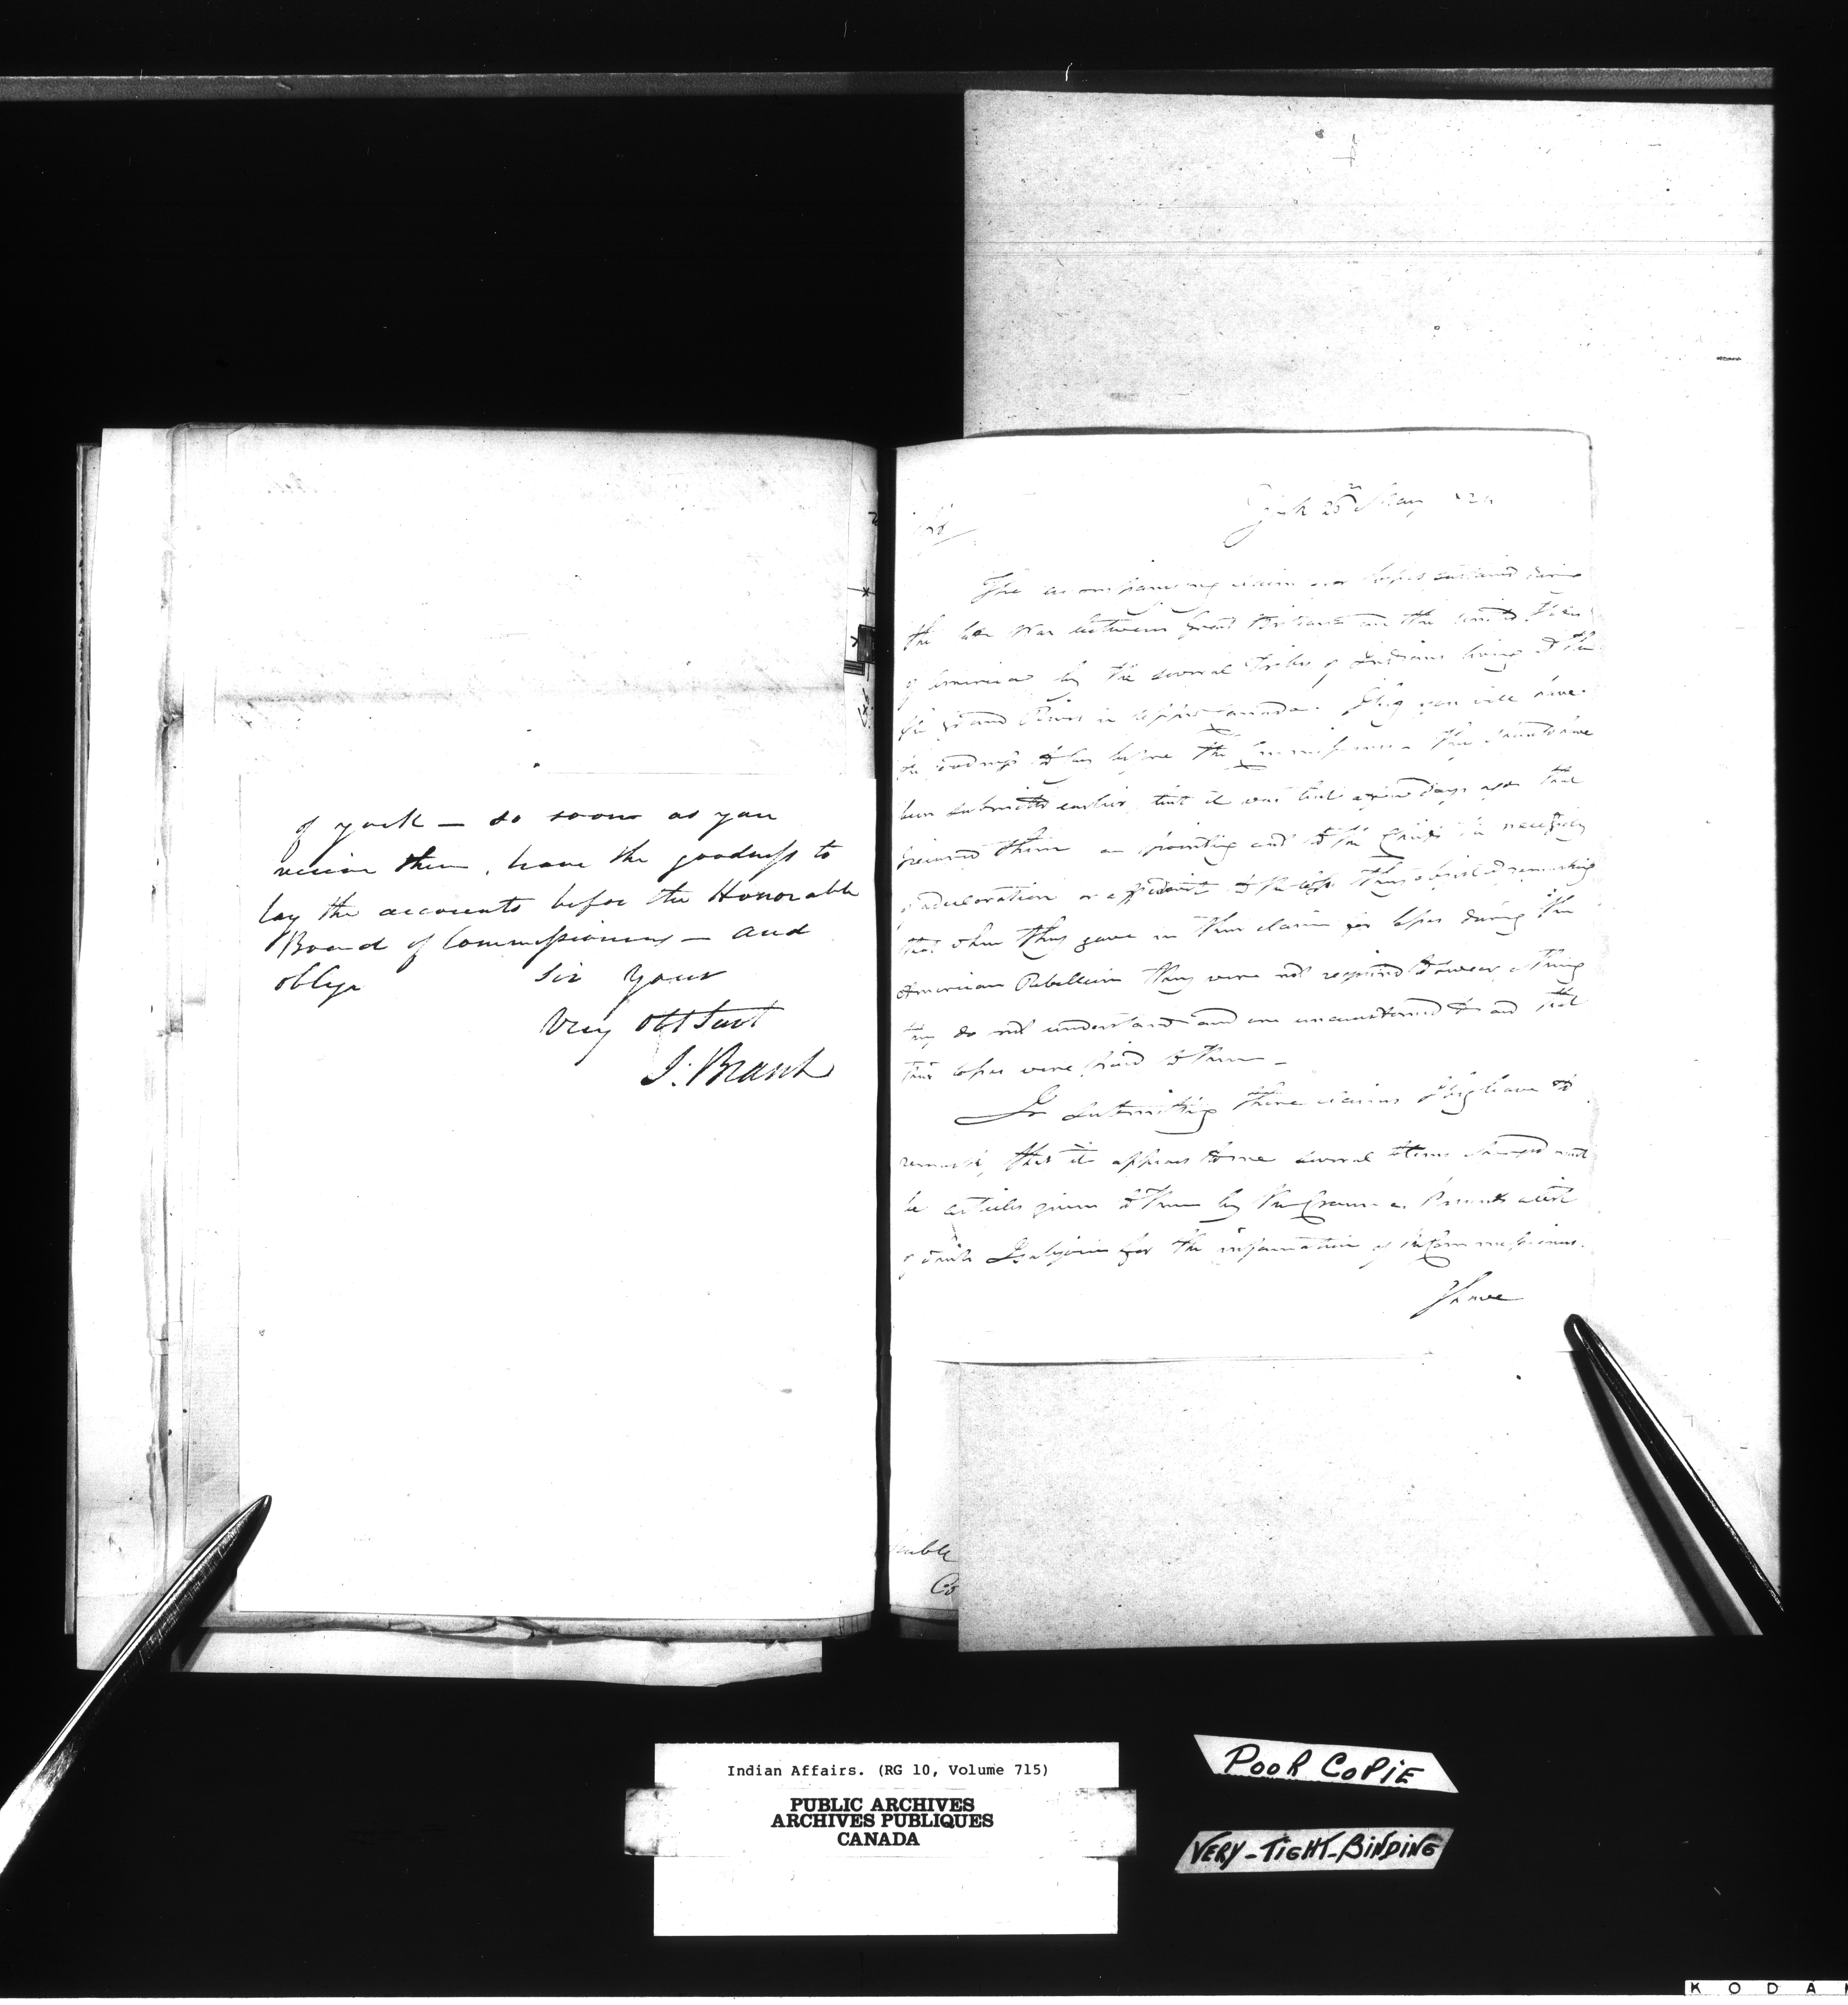 of york — so soon as you
receive them, have the goodness to
lay the accounts before the Honorable
Board of Commissioners — and
oblige Sir your
Very Obt Servt
J. Brant
York 25 May
Sir
The accompanying claim for losses sustained during
the late War between Great Britain and the United States
of America by the several Tribes of Indians living on the
the Grand River in Upper Canada. I beg you will have
the goodness to lay before the Commissioners. They should have
been submitted earlier, but it was but a few days ago that
I received them on pointing out to the Chiefs the necessity
of a declaration or affidavit to the they objected remarking
that when they gave in their claim for losses during the
American Rebellion they were not required to swear, a thing
they do not understand and are unaccustomed to and yet
their losses were paid to them —
In submitting these claims I beg leave to
remark, that it appears to me several items charged must
be articles given to them by the Crown as Presents a list
of which I subjoin for the information of the Commissioners.
I have
Co
Indian Affairs. (RG 10, Volume 715)
PUBLIC ARCHIVES
ARCHIVES PUBLIQUES
CANADA
POOR COPIE
VERY-TIGHT-BINDING
KODA